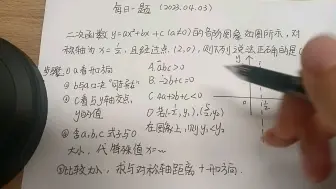 每日一题 (2023.04.03)
二次函数 y=ax²+bx+c (a≠0) 的部分图象如图所示，对
称轴为 x=1/2，且经过点 (2,0)，则下列说法正确的是
步骤：① a看开口方向
② b与a口决“同左右异”
③ C看与y轴交点，
y的值
④ 含a,b,c式子与0
大小，代特殊值 x=~
⑤ 比较大小，求与对称轴距离+开口方向.
A. abc>0
B. -2b+c=0
C. 4a+2b+c<0
D. 若(-1/2, y₁), (5/2, y₂)
在图象上，则 y₁<y₂
y
0
1/2